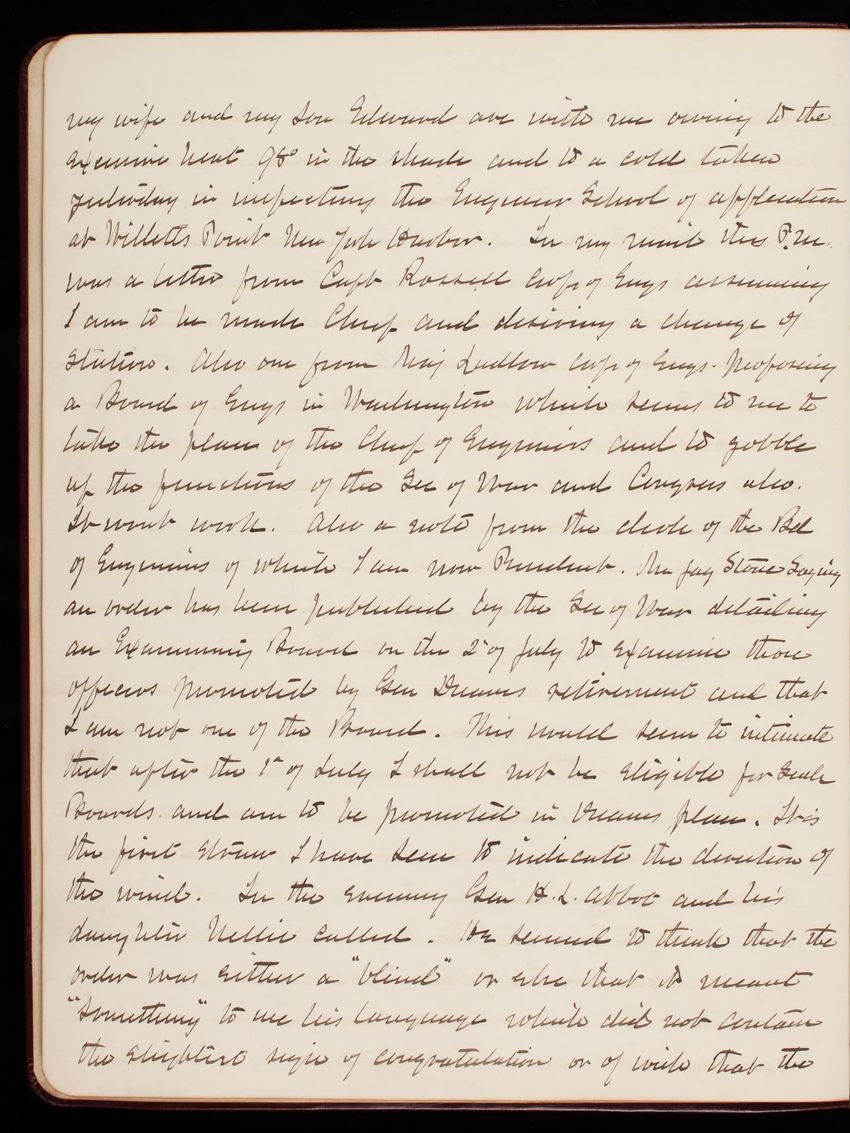 my wife and my son Edward are with me owing to the
excessive heat 98° in the shade and to a cold taken
yesterday in inspecting the Engineer School of application
at Willetts Point New York Harbor. In my mail this P.M.
was a letter from Capt Rossell Corps of Engs assuming
I am to be made Chief and desiring a change of
station. Also one from Maj Ludlow Corps of Engs. proposing
a Board of Engs in Washington which seems to me to
take the place of the Chief of Engineers and to gobble
up the functions of the Sec of War and Congress also.
It wont work. Also a note from the clerk of the Bd
of Engineers of which I am now President. Mr Jay Stone Saying
an order has been published by the Sec of War detailing
an Examining Board on the 2d of July to examine those
officers promoted by Gen Duanes retirement and that
I am not one of the Board. This would seem to intimate
that after the 1st of July I shall not be eligible for such
Boards and am to be promoted in Duanes place. It is
the first straw I have seen to indicate the direction of
the wind. In the evening Gen H. L. Abbot and his
daughter Nellie called. He seemed to think that the
order was either a "blind" or else that it meant
"something" to me his language which did not contain
the slightest sign of congratulation or of wish that the